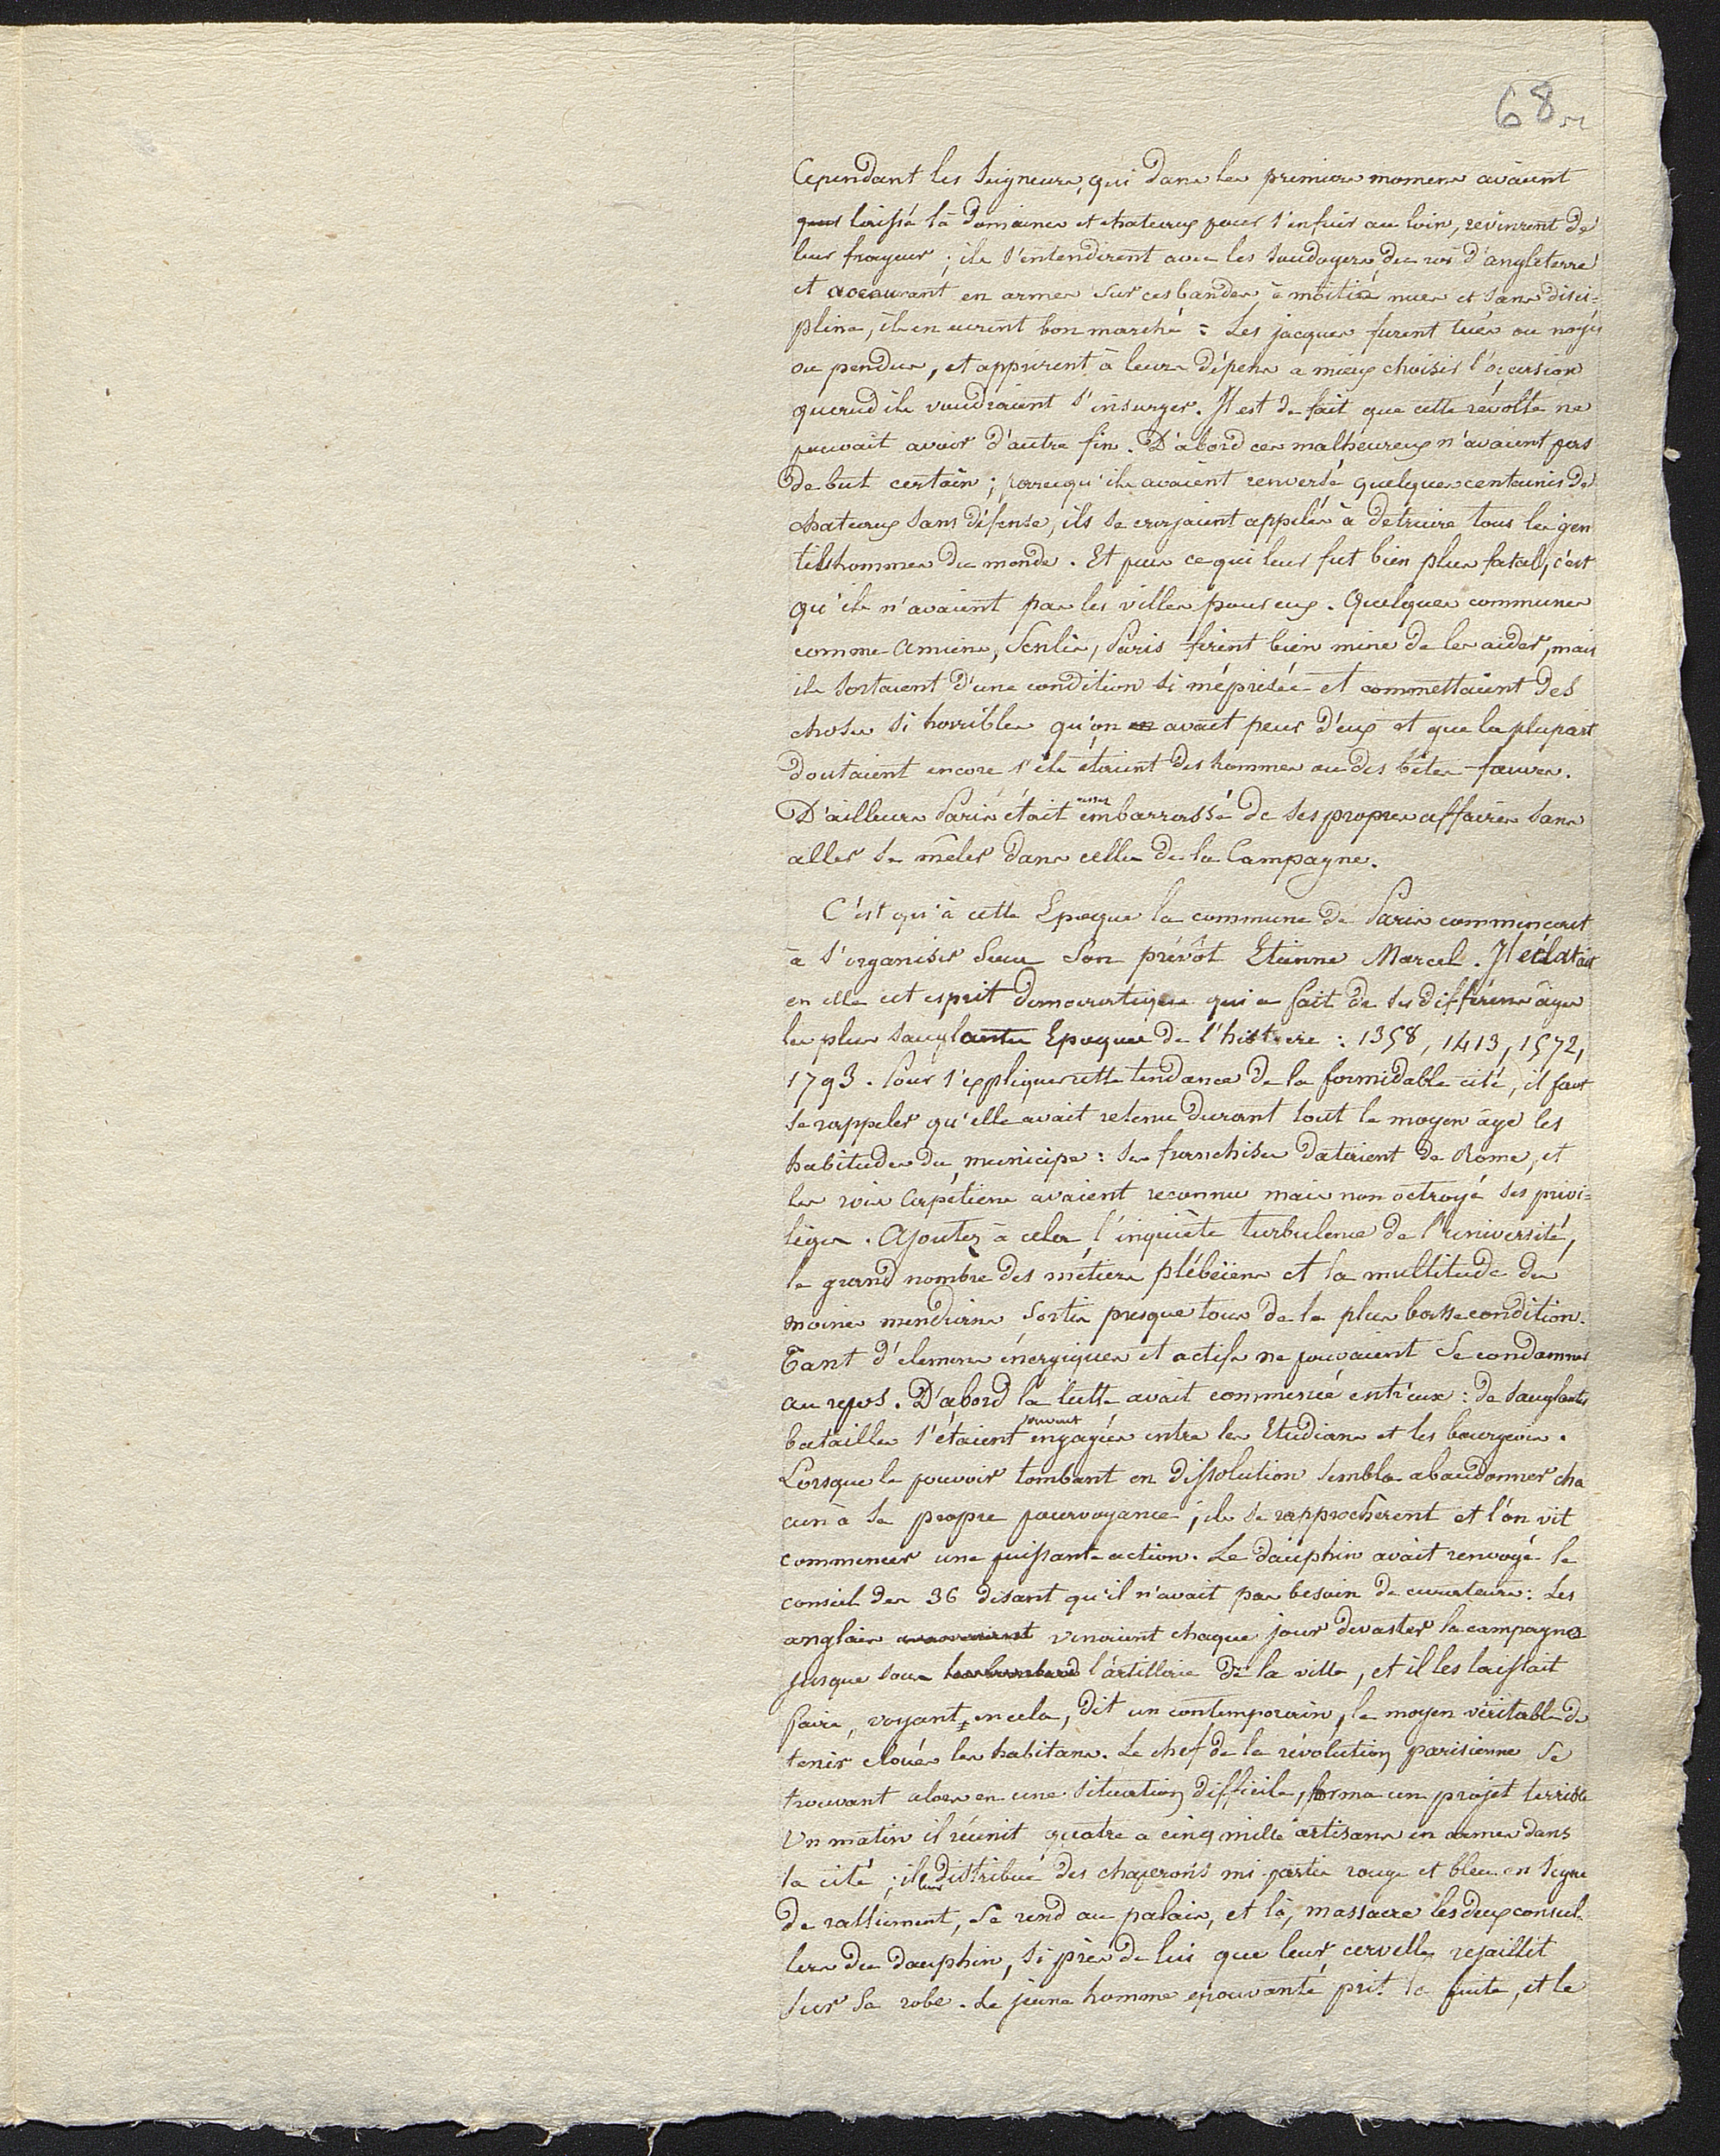 68
Cependant les Seigneurs, qui dans les premiers momens avaient
laissé là domaines et chateaux pour s'enfuir au loin, revinrent de
leur frayeur ; ils s'entendirent avec les soudoyers du roi d'angleterre
et accourant en armes sur ces bandes à moitié nues et sans disci-
pline, ils en eurent bon marché : Les jacques furent tués ou noyés
ou pendus, et apprirent à leurs dépens a mieux choisir l'occasion
quand ils voudraient s'insurger. Il est de fait que cette révolte ne
pouvait avoir d'autre fin. D'abord ces malheureux n'avaient pas
de but certain ; parcequ'ils avaient renversé quelques centaines de
chateaux sans défense, ils se croyaient appelés à détruire tous les gen
tilshommes du monde. Et puis ce qui leur fut bien plus fatal, c'est
qu'ils n'avaient pas les villes pour eux. Quelques communes
comme Amiens, Senlis, Paris firent bien mine de les aider, mais
ils sortaient d'une condition si méprisée et commettaient des
choses si horribles qu'on avait peur d'eux et que la plupart
doutaient encore s'ils étaient des hommes ou des bêtes fauves.
D'ailleurs Paris était assez embarrassé de ses propres affaires sans
aller se mêler dans celles de la Campagne.
C'est qu'à cette Epoque la commune de Paris commençait
à s'organiser sous son prévôt Etienne Marcel. Il éclatait
en elle cet esprit démocratique qui a fait de ses différens âges
les plus sanglantes Epoques de l'histoire : 1358, 1413, 1572,
1793. Pour s'expliquer cette tendance de la formidable cité, il faut
se rappeler qu'elle avait retenu durant tout le moyen âge les
habitudes du municipe : ses franchises dataient de Rome, et
les rois Capétiens avaient reconnu mais non octroyé ses privi-
lèges. Ajoutez à cela l'inquiète turbulence de l'université,
le grand nombre des métiers plébéïens et la multitude des
moines mendians sortis presque tous de la plus basse condition.
Tant d'élemens énergiques et actifs ne pouvaient se condamner
au repos. D'abord la lutte avait commencé entr'eux : de sanglantes
batailles s'étaient souvent engagées entre les Etudians et les bourgeois.
Lorsque le pouvoir tombant en dissolution sembla abandonner cha
cun à sa propre pourvoyance, ils se rapprochèrent et l'on vit
commencer une puissante action. Le dauphin avait renvoyé le
conseil des 36 disant qu'il n'avait pas besoin de curateurs : Les
anglais venaient chaque jour dévaster la campagne
jusque sous l'artillerie de la ville, et il les laissait
faire, voyant en cela, dit un contemporain, le moyen véritable de
tenir cloués les habitans. Le chef de la révolution parisienne se
trouvant alors en une situation difficile, forma un projet terrible
Un matin il réunit quatre a cinq mille artisans en armes dans
la cité ; il leur distribue des chaperons mi partis rouge et bleu en signe
de ralliement, se rend au palais, et là, massacre les deux conseil-
lers du dauphin, si près de lui que leur cervelle rejaillit
sur sa robe. Le jeune homme epouvanté prit la fuite, et le